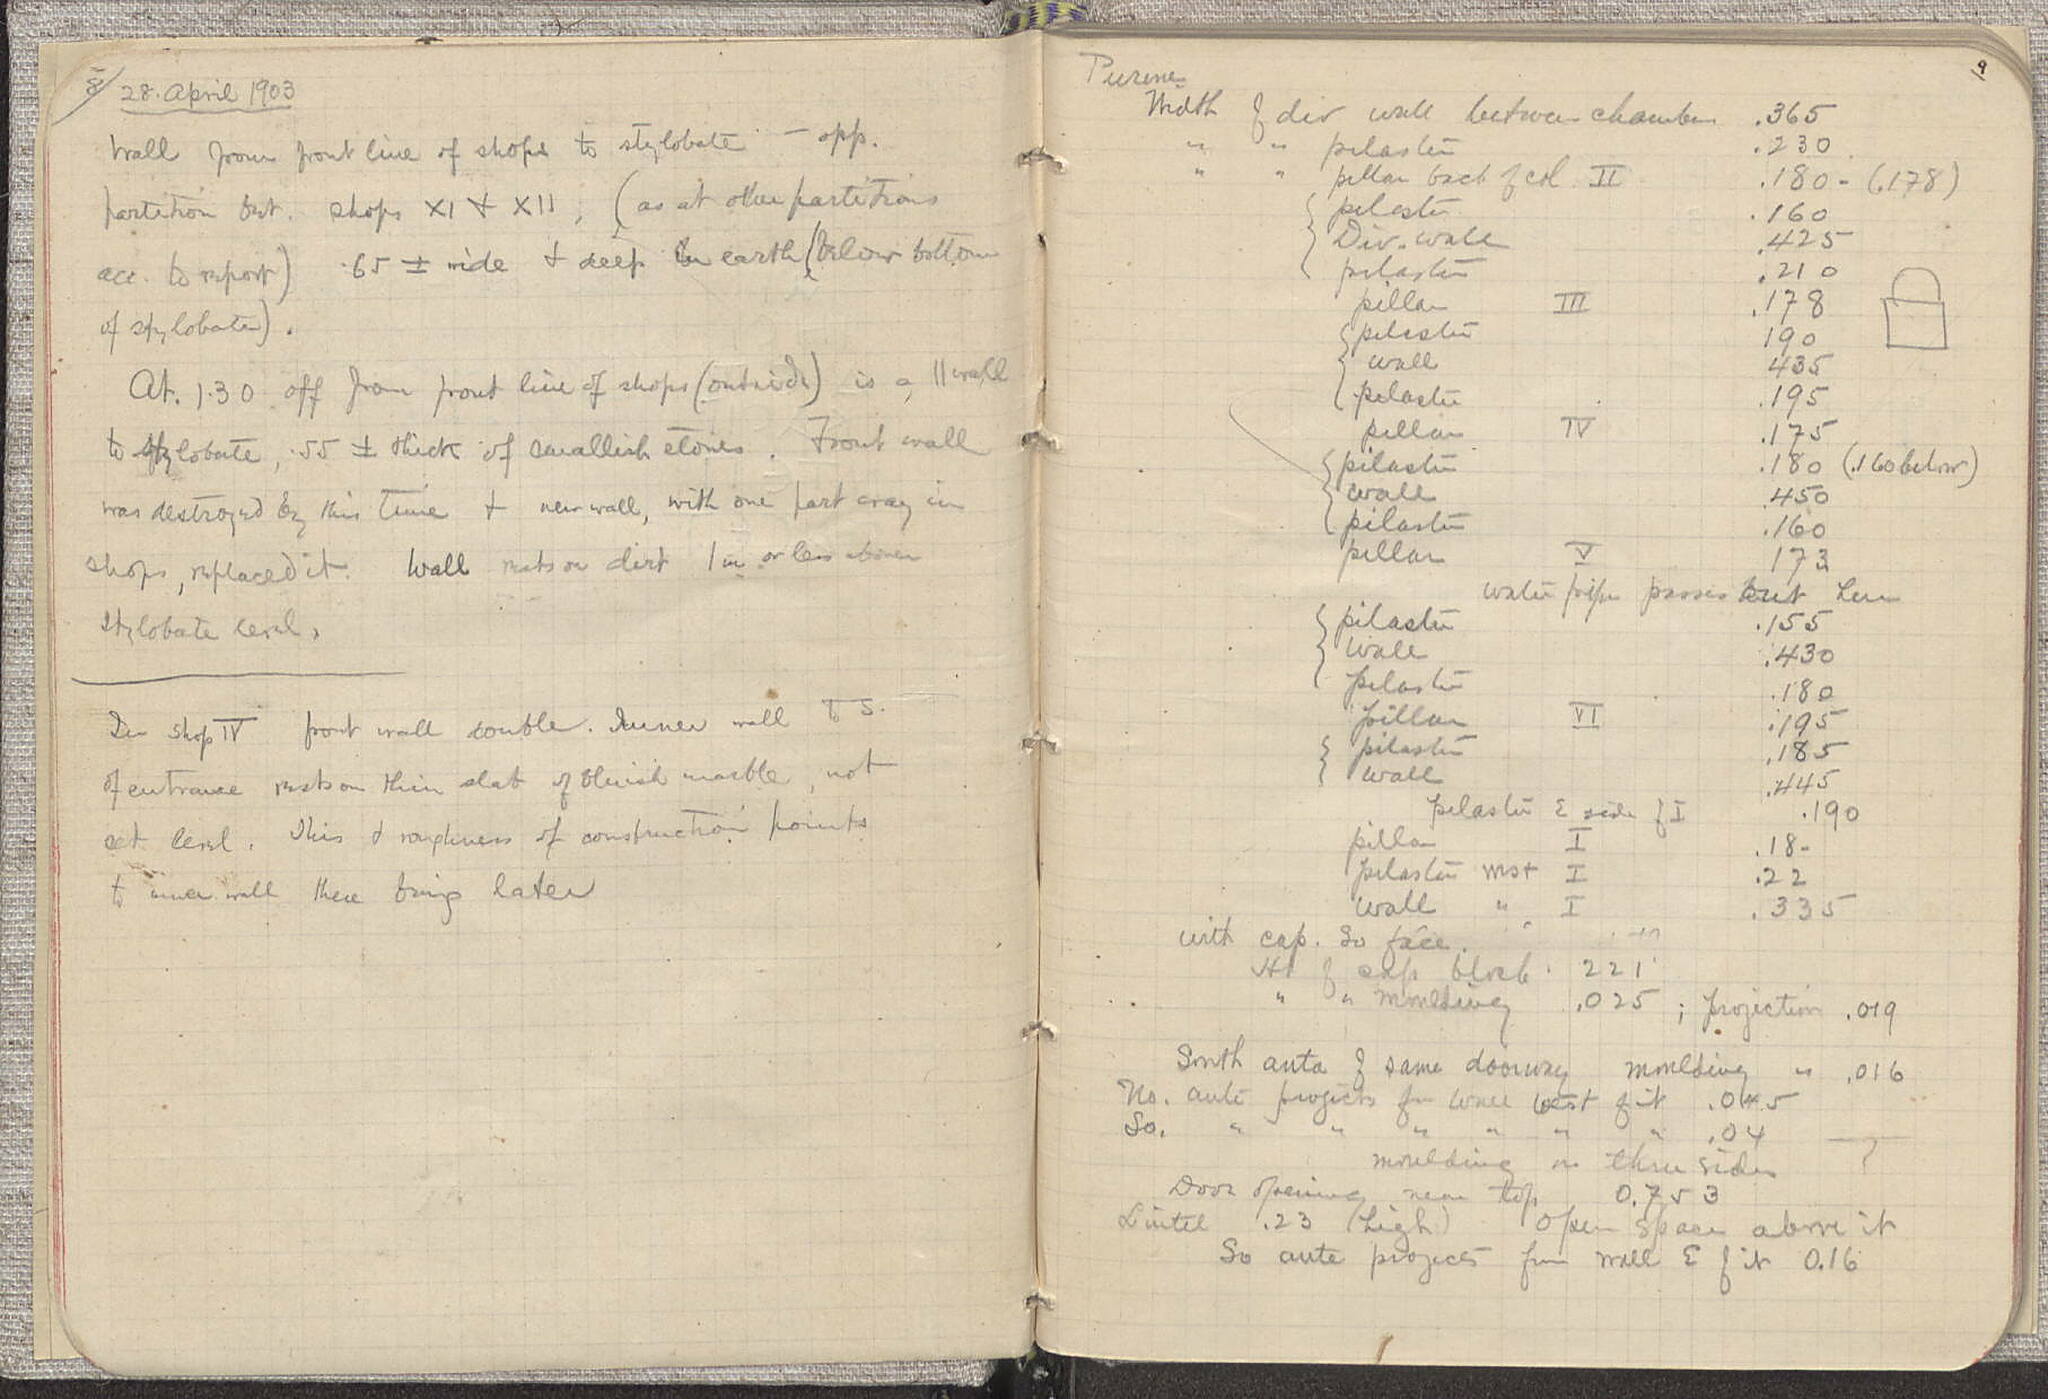 8/ 28. April 1903
Wall from front line of shops to stylobate — opp.
partition bet. shops XI & XII, (as at other partitions
acc. to report) .65 ± wide & deep in earth (below bottom
of stylobate).
At. 1.30 off from front line of shops (outside) is a, || wall
to stylobate, .55 ± thick of smallish stones. Front wall
was destroyed by this time & new wall, with one part way in
shops, replaced it. Wall rests on dirt 1m or less above
stylobate level.
In shop IV front wall double. Inner wall to S.
of entrance rests on thin slab of bluish marble, not
set level. This & roughness of construction points
to inner wall there being later
9
Pirene
Width of div wall between chambers .365
" " pilaster .230
" " pillar back of col. II .180 - (.178)
pilaster .160
Div. wall .425
pilaster .210
pillar III .178
pilaster 190
wall 435
pilaster .195
pillar IV .175
pilaster .180 (.160 below)
wall .450
pilaster .160
pillar V 173
water pipe passes but here
pilaster .155
wall .430
pilaster .180
pillar VI .195
pilaster .185
wall .445
pilaster E side of I .190
pillar I .18-
pilaster west I .22
wall " I .335
with cap. So face.
Ht of cap block . 221
" " moulding .025 ; projection .019
South anta of same doorway moulding " .016
No. anta projects fr wall west of it .045
So. " " " " " " .04
moulding on three sides ?
Door opening near top 0.753
Lintel .23 (high) Open space above it
So anta projects from wall E of it 0.16